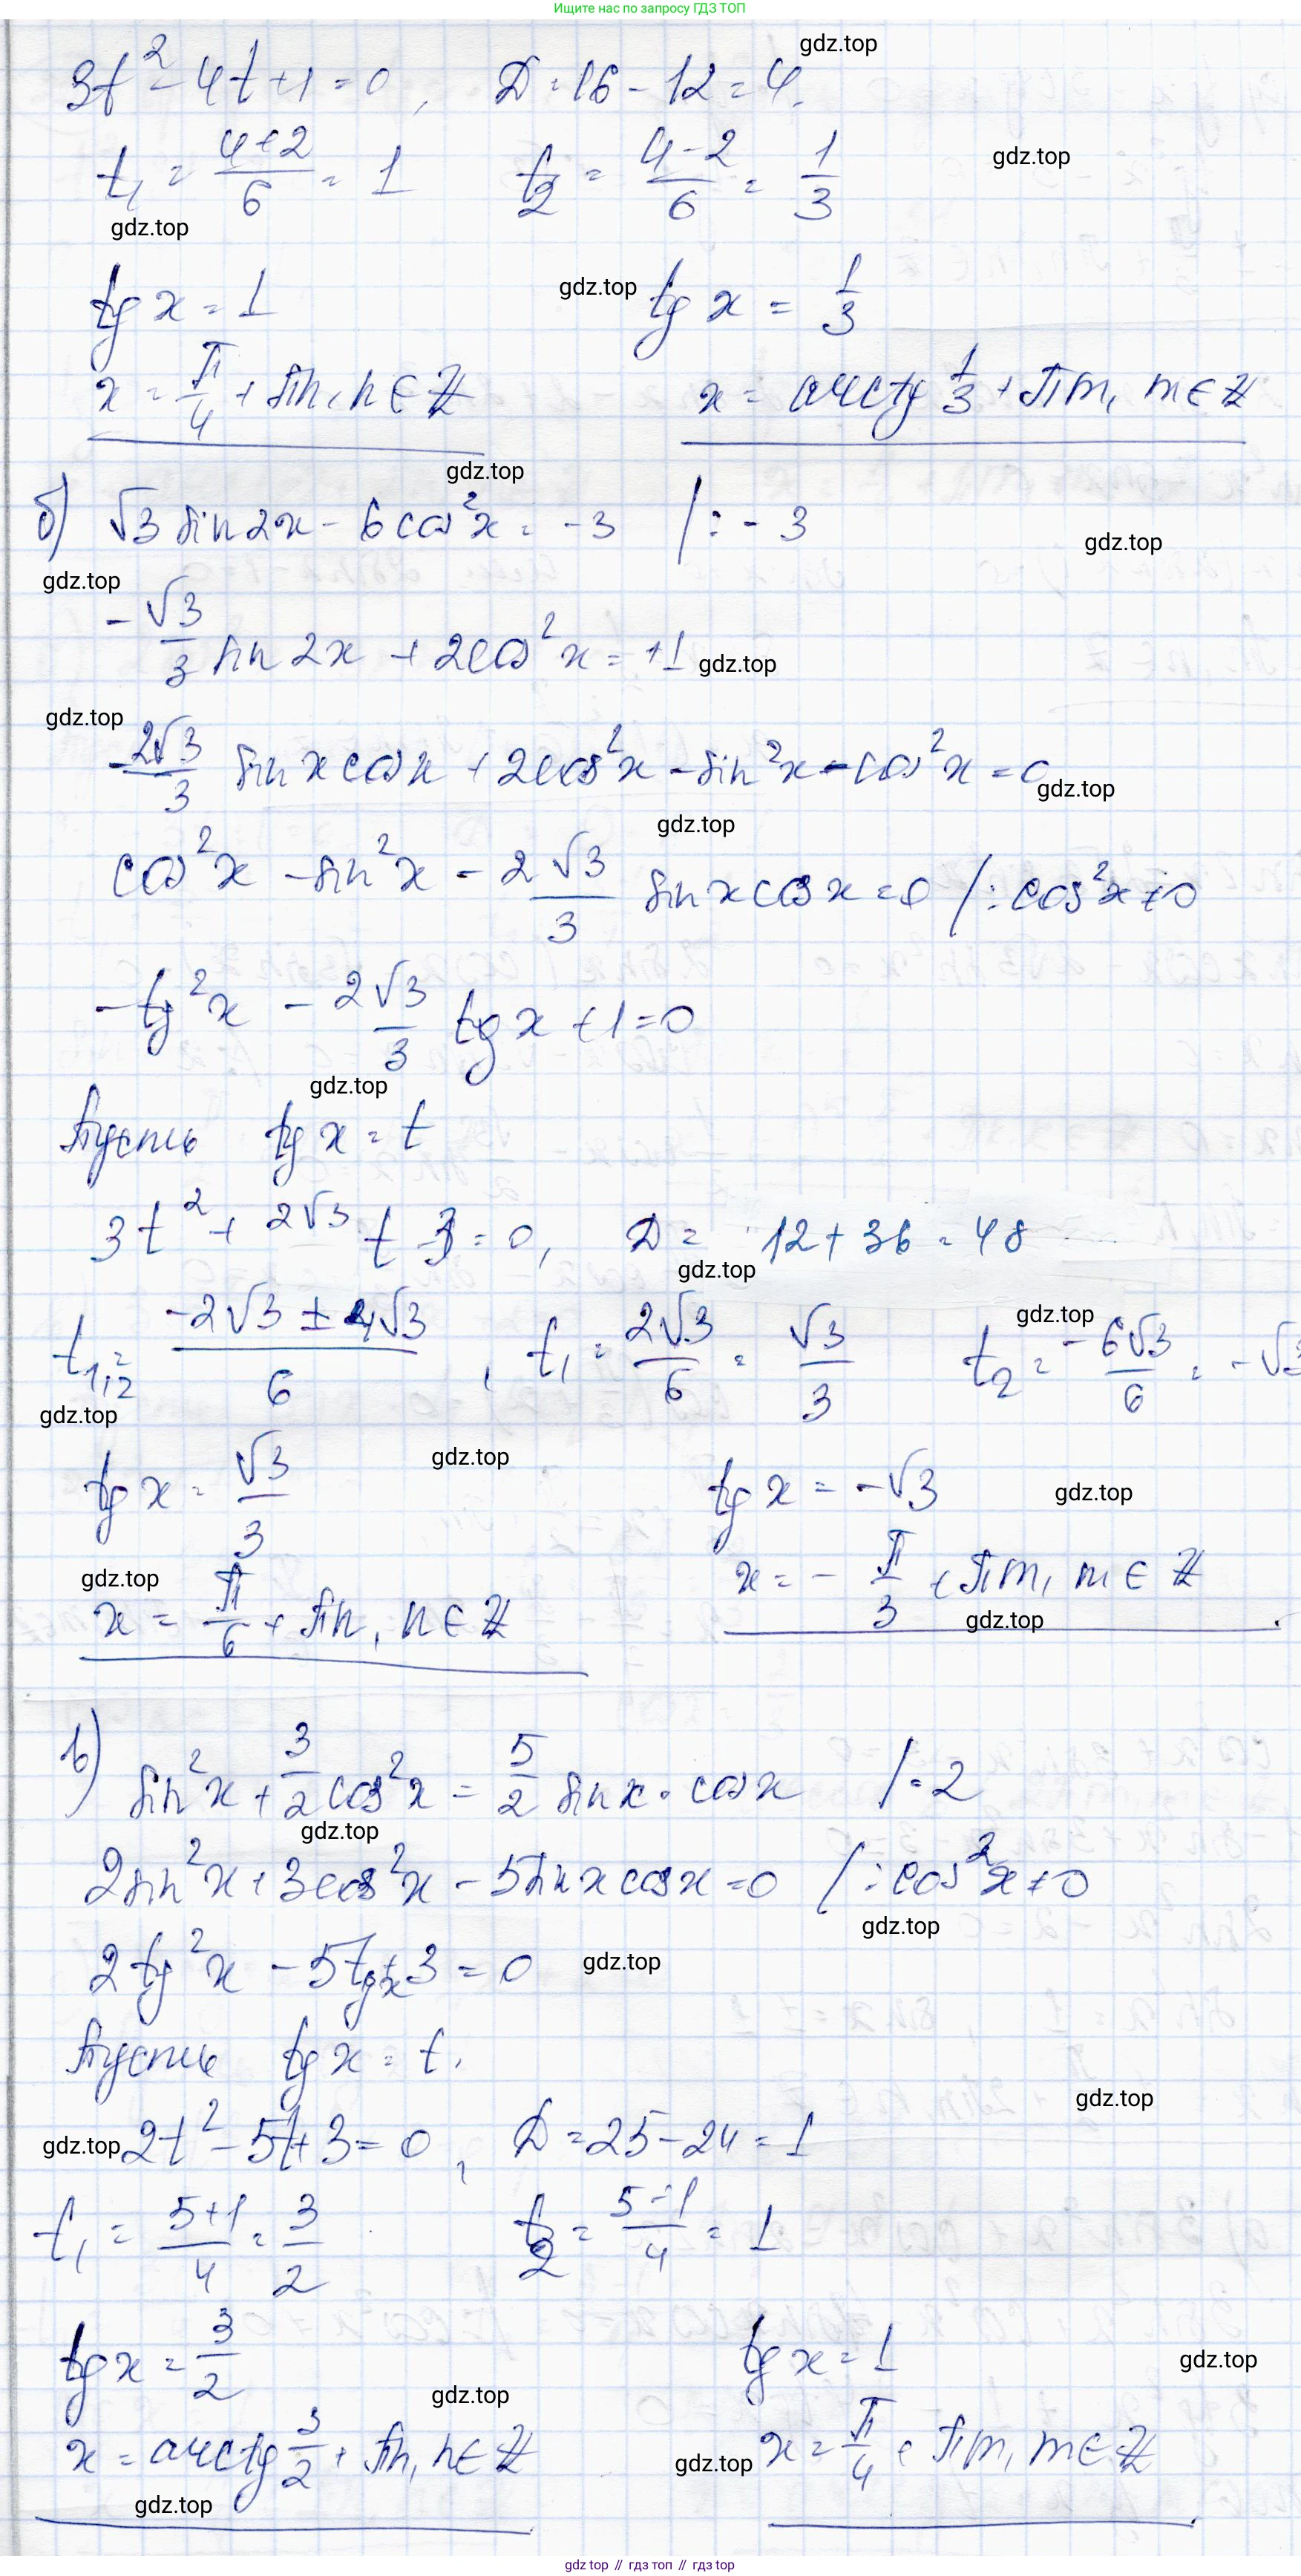 Ищите нас по запросу ГДЗ ТОП
gdz.top
3t² - 4t + 1 = 0, D = 16 - 12 = 4.
gdz.top
t₁ = (4+2)/6 = 1 t₂ = (4-2)/6 = 1/3
gdz.top
gdz.top
tg x = 1 tg x = 1/3
x = π/4 + πn, n ∈ Z x = arctg 1/3 + πm, m ∈ Z
gdz.top
б) √3 sin2x - 6cos²x = -3 /: -3
gdz.top
gdz.top
-√3/3 sin 2x + 2cos²x = +1
gdz.top
gdz.top
-2√3/3 sin x cos x + 2cos²x - sin²x - cos²x = 0
gdz.top
gdz.top
cos²x - sin²x - 2√3/3 sin x cos x = 0 /: cos²x ≠ 0
-tg²x - 2√3/3 tg x + 1 = 0
gdz.top
Пусть tg x = t
3t² + 2√3 t - 3 = 0, D = 12 + 36 = 48
gdz.top
gdz.top
t₁,₂ = (-2√3 ± 4√3)/6, t₁ = 2√3/6 = √3/3 t₂ = -6√3/6 = -√3
gdz.top
gdz.top
tg x = √3/3 tg x = -√3
gdz.top
gdz.top
x = π/6 + πn, n ∈ Z x = -π/3 + πm, m ∈ Z.
gdz.top
в) sin²x + 3/2 cos²x = 5/2 sin x · cos x /·2
gdz.top
2sin²x + 3cos²x - 5sin x cos x = 0 /: cos²x ≠ 0
gdz.top
2tg²x - 5tg x + 3 = 0
gdz.top
Пусть tg x = t.
gdz.top
gdz.top
2t² - 5t + 3 = 0, D = 25 - 24 = 1
t₁ = (5+1)/4 = 3/2 t₂ = (5-1)/4 = 1
tg x = 3/2 tg x = 1
gdz.top
gdz.top
x = arctg 3/2 + πn, n ∈ Z x = π/4 + πm, m ∈ Z.
gdz.top
gdz.top
gdz top // гдз топ // gdz top